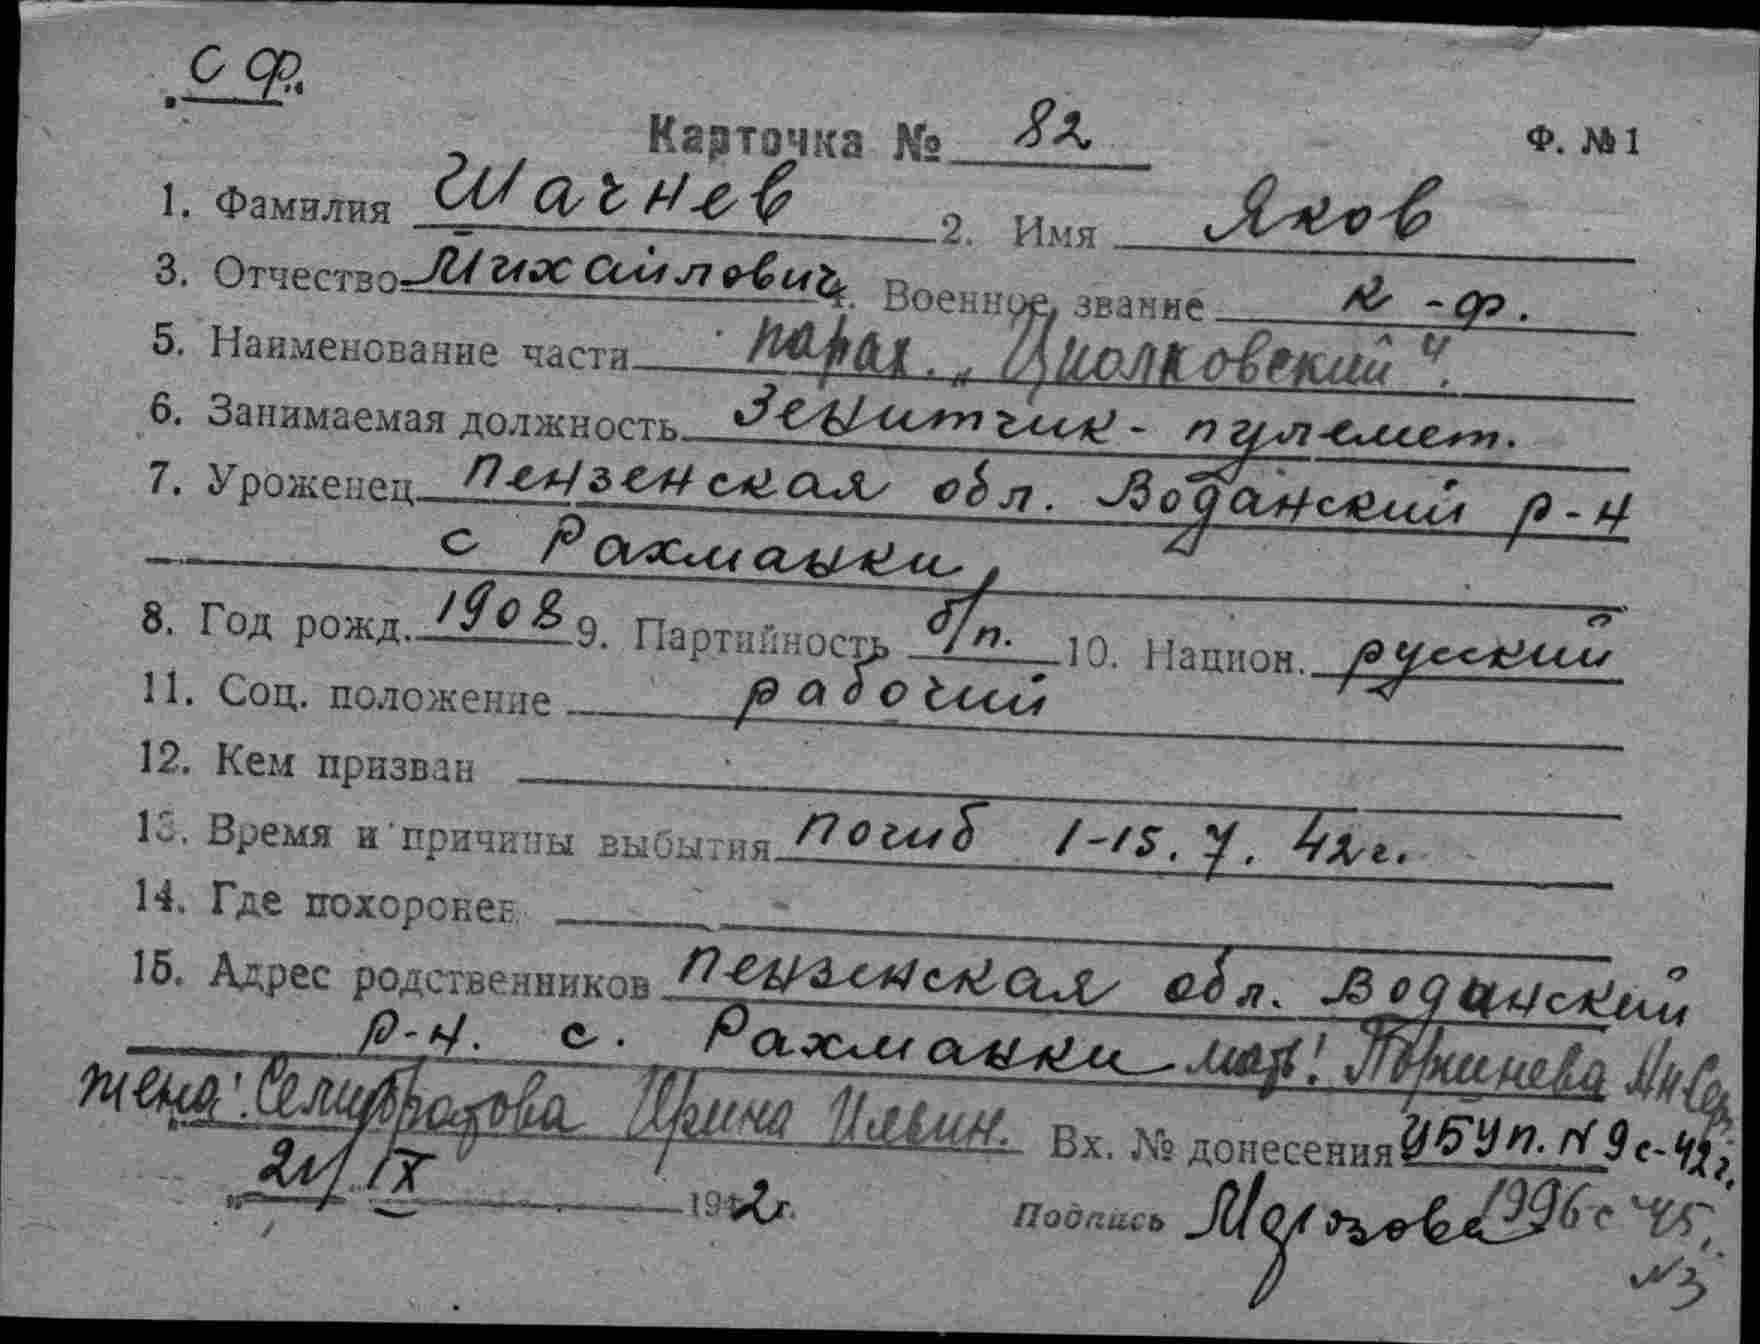 с ф.
Карточка № 82 Ф. №1
1. Фамилия Шачнев 2. Имя Яков
3. Отчество Михайлович 4. Военное звание к-ф.
5. Наименование части парах. „Циолковский“.
6. Занимаемая должность Зенитчик-пулемет.
7. Уроженец Пензенская обл. Воданский р-н
с Рахманки,
8. Год рожд. 1908 9. Партийность б/п. 10. Национ. русский
11. Соц. положение рабочий
12. Кем призван
13. Время и причины выбытия погиб 1-15.7.42г.
14. Где похоронен
15. Адрес родственников Пензенская обл. Воданский
р-н. с. Рахманки мать:
жена: Ирина Ильин. Вх. № донесения УБУп. N 9с-42г.
21/IX 1942г. Подпись Морозова 1996с 45,
N3